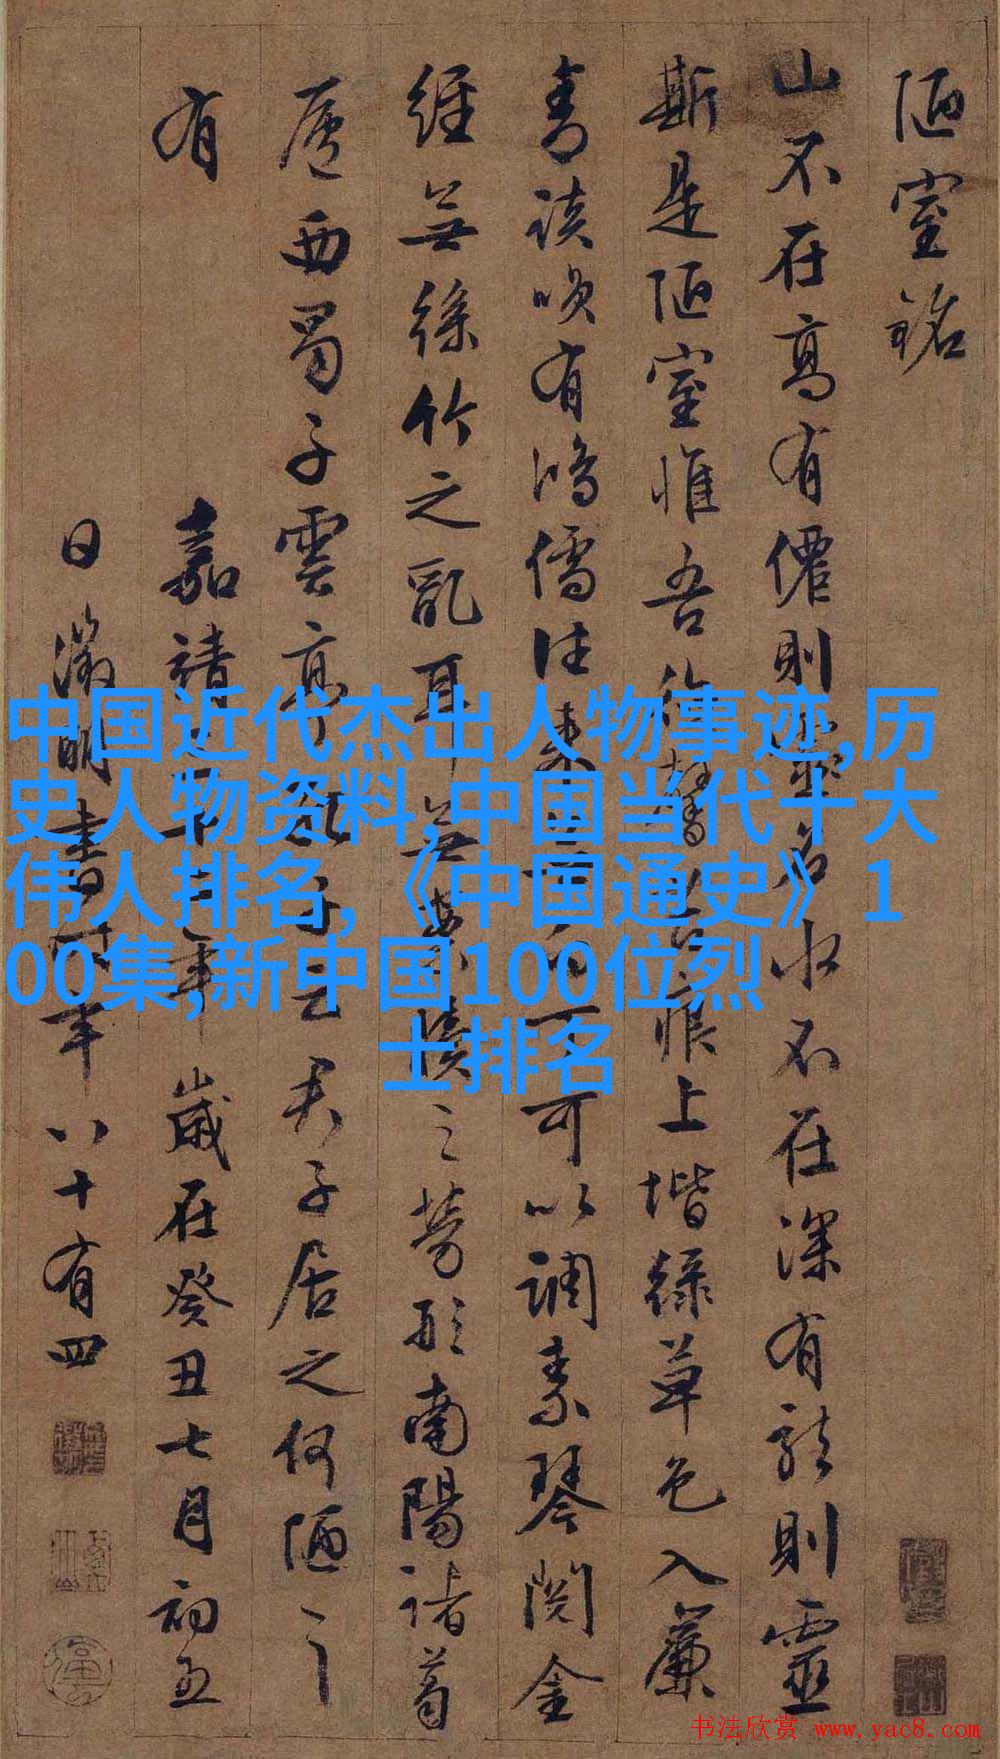 陋室銘
山不在高有僊則名水不在深有龍則靈
斯是陋室惟吾德馨苔痕上堦緑草色入簾
青談咲有鴻儒往来無白丁可以調素琴閲金
經無絲竹之亂耳無案牘之勞形南陽諸葛
廬西蜀子雲亭孔子云君子居之何陋之
有
嘉靖三十二年歲在癸丑七月初五
日徵明書時年八十有四
中国近代杰出人物事迹,历
史人物资料,中国当代十大
伟人排名,《中国通史》1
00集,新中国100位烈
士排名
书法欣赏 www.yac8.com